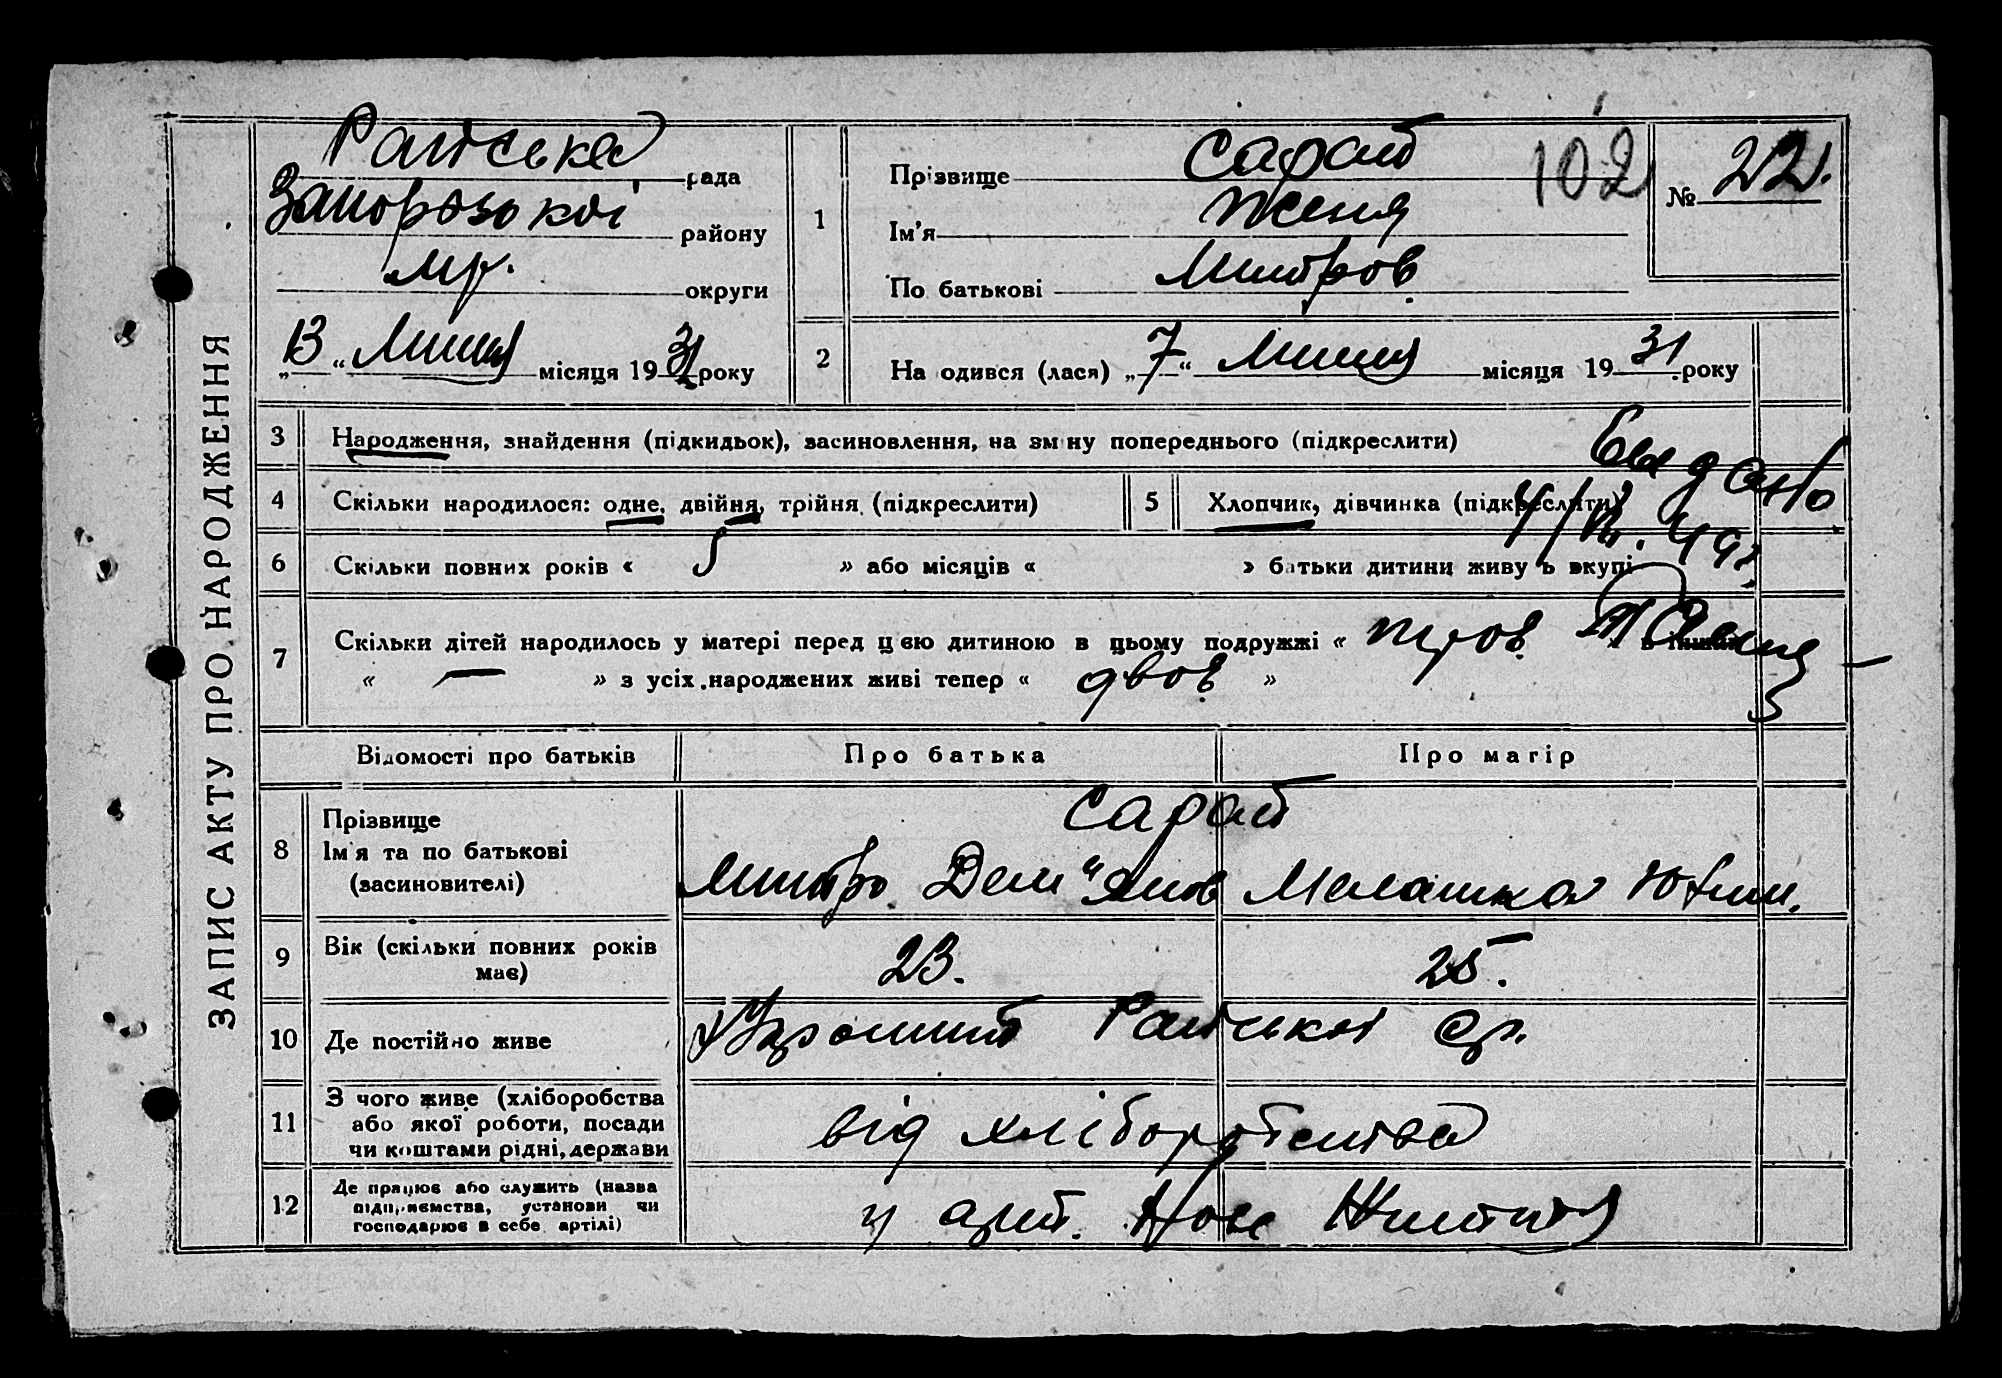 ЗАПИС АКТУ ПРО НАРОДЖЕННЯ
рада
Запорозької району
мр. округи
„13“ Липня місяця 1931 року
1
Прізвище Сараб
Ім'я Женя
По батькові Митров.
102
№ 22.
2
Народився (лася) „7“ Липня місяця 1931 року
3 Народження, знайдення (підкидьок), засиновлення, на зміну попереднього (підкреслити)
4 Скільки народилося: одне, двійня, трійня (підкреслити)
5 Хлопчик, дівчинка (підкреслити)
49г.
6 Скільки повних років « 5 » або місяців « » батьки дитини живуть вкупі
7 Скільки дітей народилось у матері перед цією дитиною в цьому подружжі « троє
« — » з усіх народжених живі тепер « двоє »
Відомості про батьків Про батька Про матір
8 Прізвище
Ім'я та по батькові
(засиновителі)
Сараб
Митро Дем"янов Мелашка Юхим.
9 Вік (скільки повних років
має)
23. 25.
10 Де постійно живе
ср.
11 З чого живе (хліборобства
або якої роботи, посади
чи коштами рідні, держави
від хліборобства
12 Де працює або служить (назва
підприємства, установи чи
господарює в себе, артілі)
у арт. Нове Життя